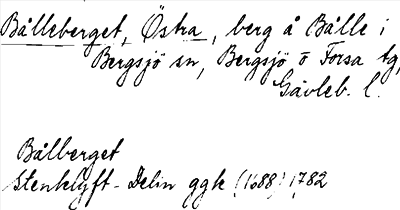 Bålleberget, Östra, berg å Bålle i
Bergsjö sn, Bergsjö o Forsa tg,
Gävleb. l.
Bålberget
Stenklyft - Delin ggk (1688) 1782